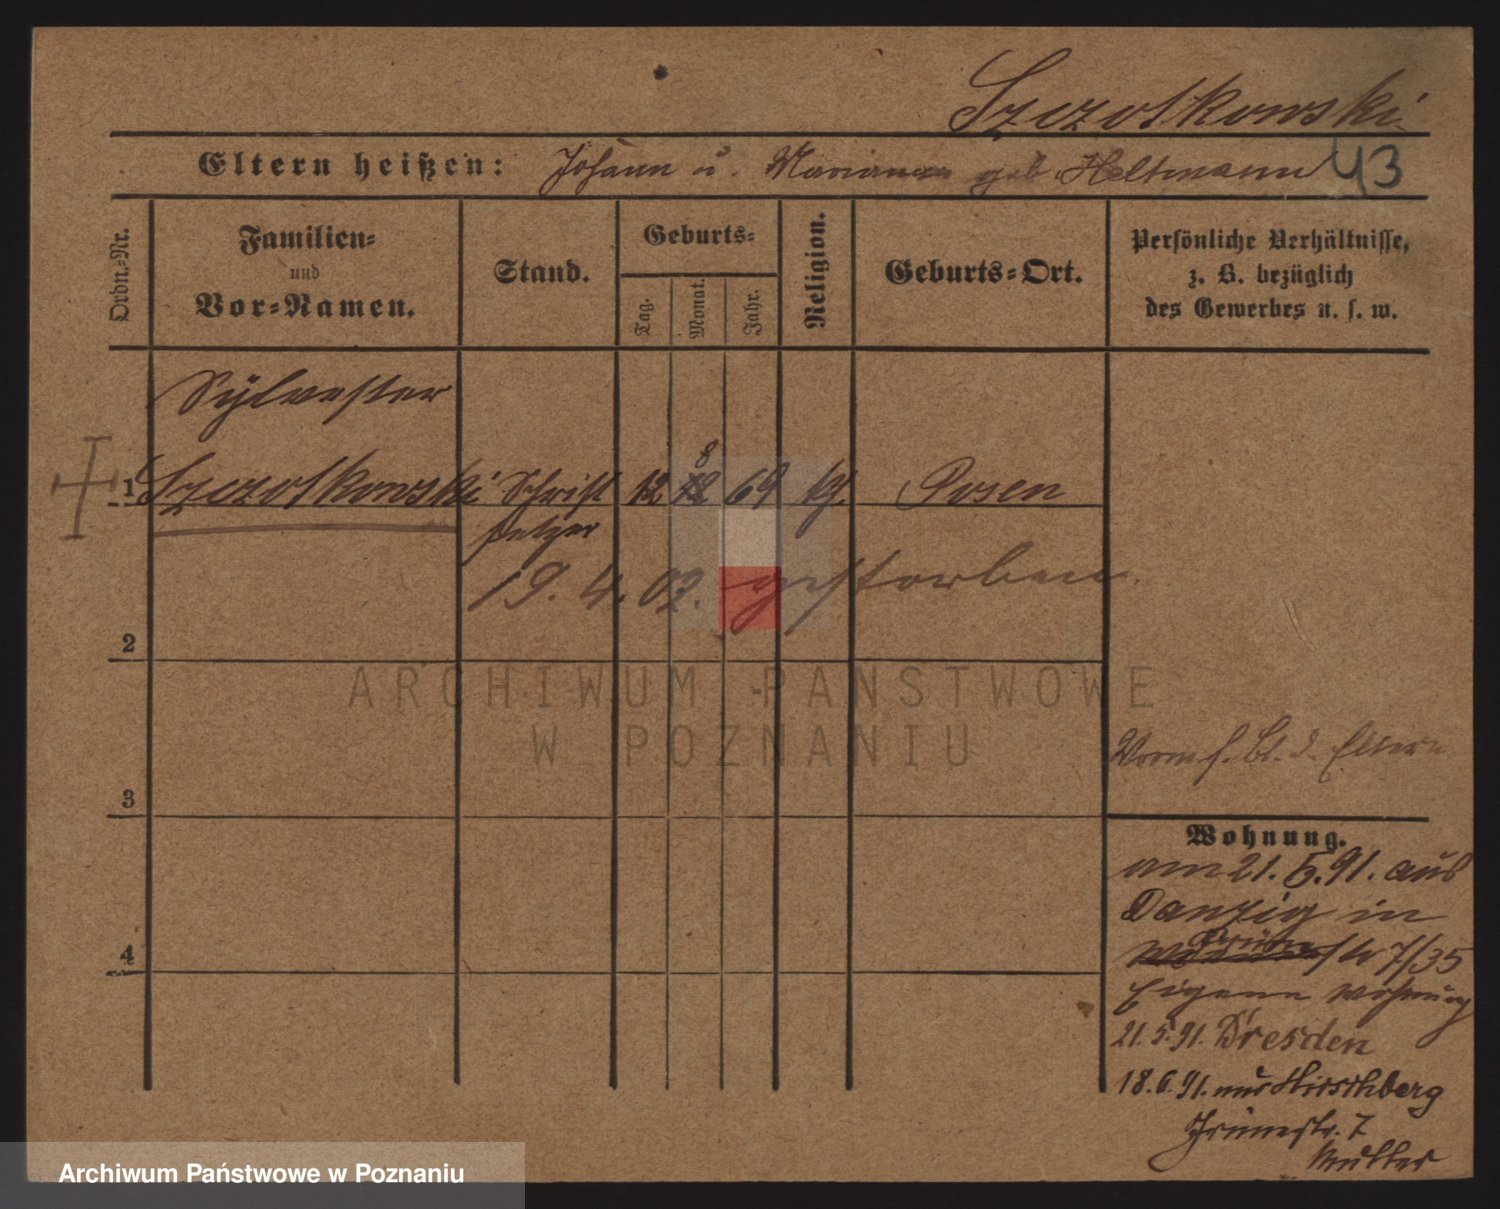 Szczotkowski
Eltern heißen: Johann u. Marianna geb. Heltmann 43
Ordn.-Nr.
Familien-
und
Vor-Namen.
Stand.
Geburts-
Tag.
Monat.
Jahr.
Religion.
Geburts-Ort.
Persönliche Verhältnisse,
z. B. bezüglich
des Gewerbes u. s. w.
Sylvester
1 Szczotkowski Schrift 12 8 69 Posen
setzer
19. 4. 02. gestorben.
2
ARCHIWUM PAŃSTWOWE
W POZNANIU
d. Eltern
3
Wohnung.
am 21. 5. 91. aus
Danzig in
str 7/35
4
Eigene Wohnung
21. 5. 91. Dresden
18. 6. 91. aus Hirschberg
Grünestr. 7
Mutter
Archiwum Państwowe w Poznaniu